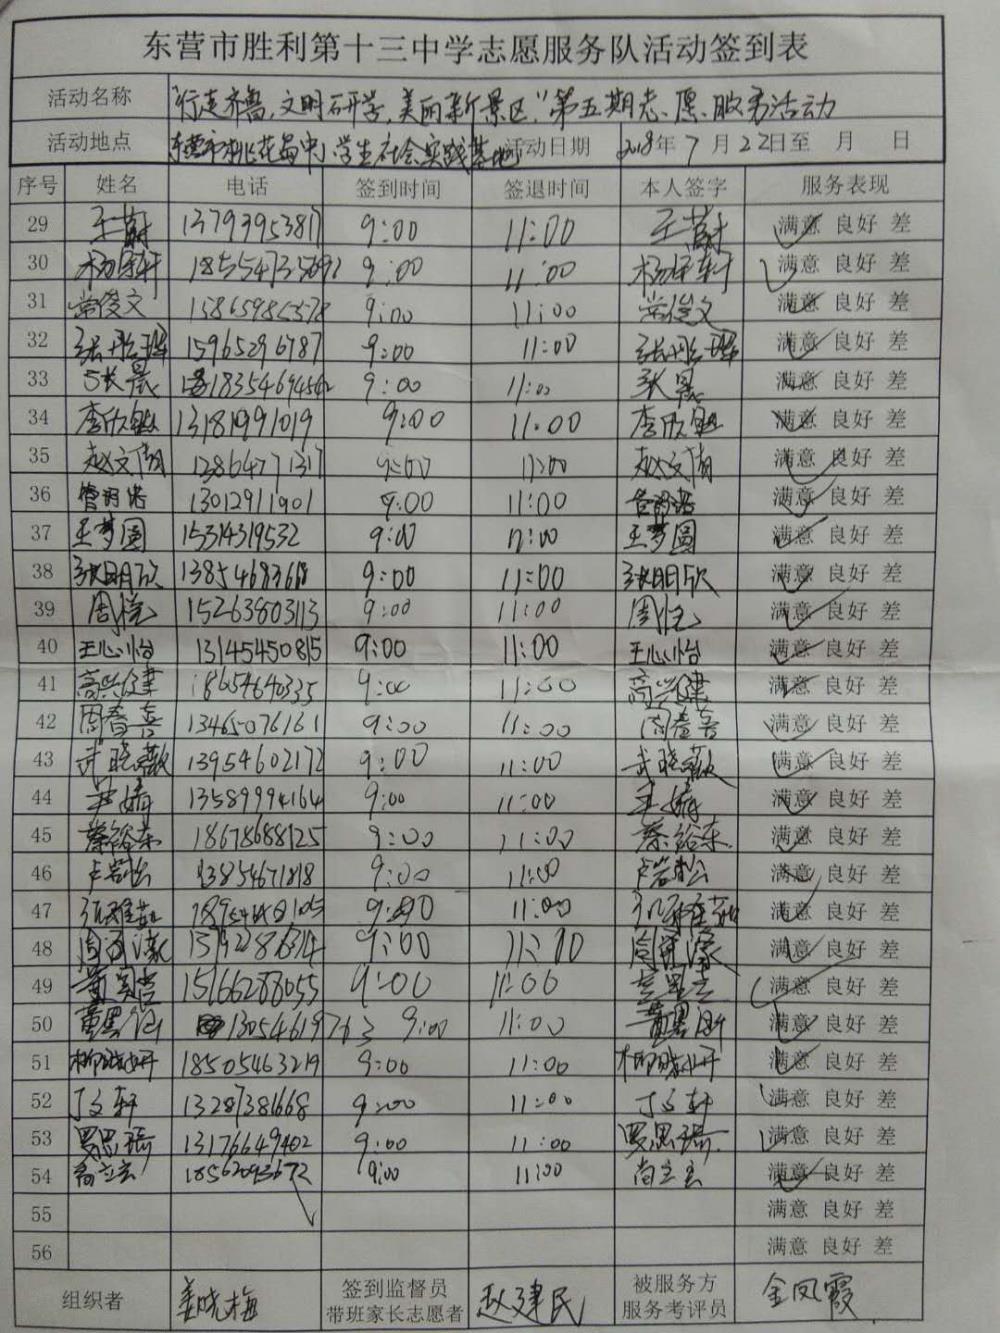 东营市胜利第十三中学志愿服务队活动签到表
活动名称 “行走齐鲁,文明研学,美丽新景区”第五期志愿服务活动
活动地点 东营市桃花岛中小学生社会实践基地 活动日期 2018年7月22日至 月 日
序号 姓名 电话 签到时间 签退时间 本人签字 服务表现
29 王蔚 13793953817 9:00 11:00 王蔚 满意 良好 差
30 9:00 11:00 满意 良好 差
31 常俊文 9:00 11:00 常俊文 满意 良好 差
32 15965296787 9:00 11:00 满意 良好 差
33 张晨 18354694562 9:00 11:00 张晨 满意 良好 差
34 13181991019 9:00 11:00 满意 良好 差
35 13864771317 9:00 11:00 满意 良好 差
36 13012911901 9:00 11:00 满意 良好 差
37 王梦圆 15314319532 9:00 11:00 王梦圆 满意 良好 差
38 张明欣 13854683668 9:00 11:00 张明欣 满意 良好 差
39 周悦 15263803113 9:00 11:00 周悦 满意 良好 差
40 王心怡 13145450815 9:00 11:00 王心怡 满意 良好 差
41 高兴健 18654640335 9:00 11:00 高兴健 满意 良好 差
42 周春喜 13465076161 9:00 11:00 周春喜 满意 良好 差
43 武晓薇 13954602172 9:00 11:00 武晓薇 满意 良好 差
44 13589994164 9:00 11:00 满意 良好 差
45 蔡裕东 18678688125 9:00 11:00 蔡裕东 满意 良好 差
46 卢岩松 13854671818 9:00 11:00 卢岩松 满意 良好 差
47 9:00 11:00 满意 良好 差
48 9:00 11:00 满意 良好 差
49 15166288055 9:00 11:00 满意 良好 差
50 13054619763 9:00 11:00 满意 良好 差
51 柳晓妍 18505463219 9:00 11:00 柳晓妍 满意 良好 差
52 丁文轩 13287381668 9:00 11:00 丁文轩 满意 良好 差
53 罗思瑶 13176649402 9:00 11:00 罗思瑶 满意 良好 差
54 尚立玄 18562093672 9:00 11:00 尚立玄 满意 良好 差
55 满意 良好 差
56 满意 良好 差
组织者 姜晓梅 签到监督员 赵建民 被服务方 金凤霞
带班家长志愿者 服务考评员